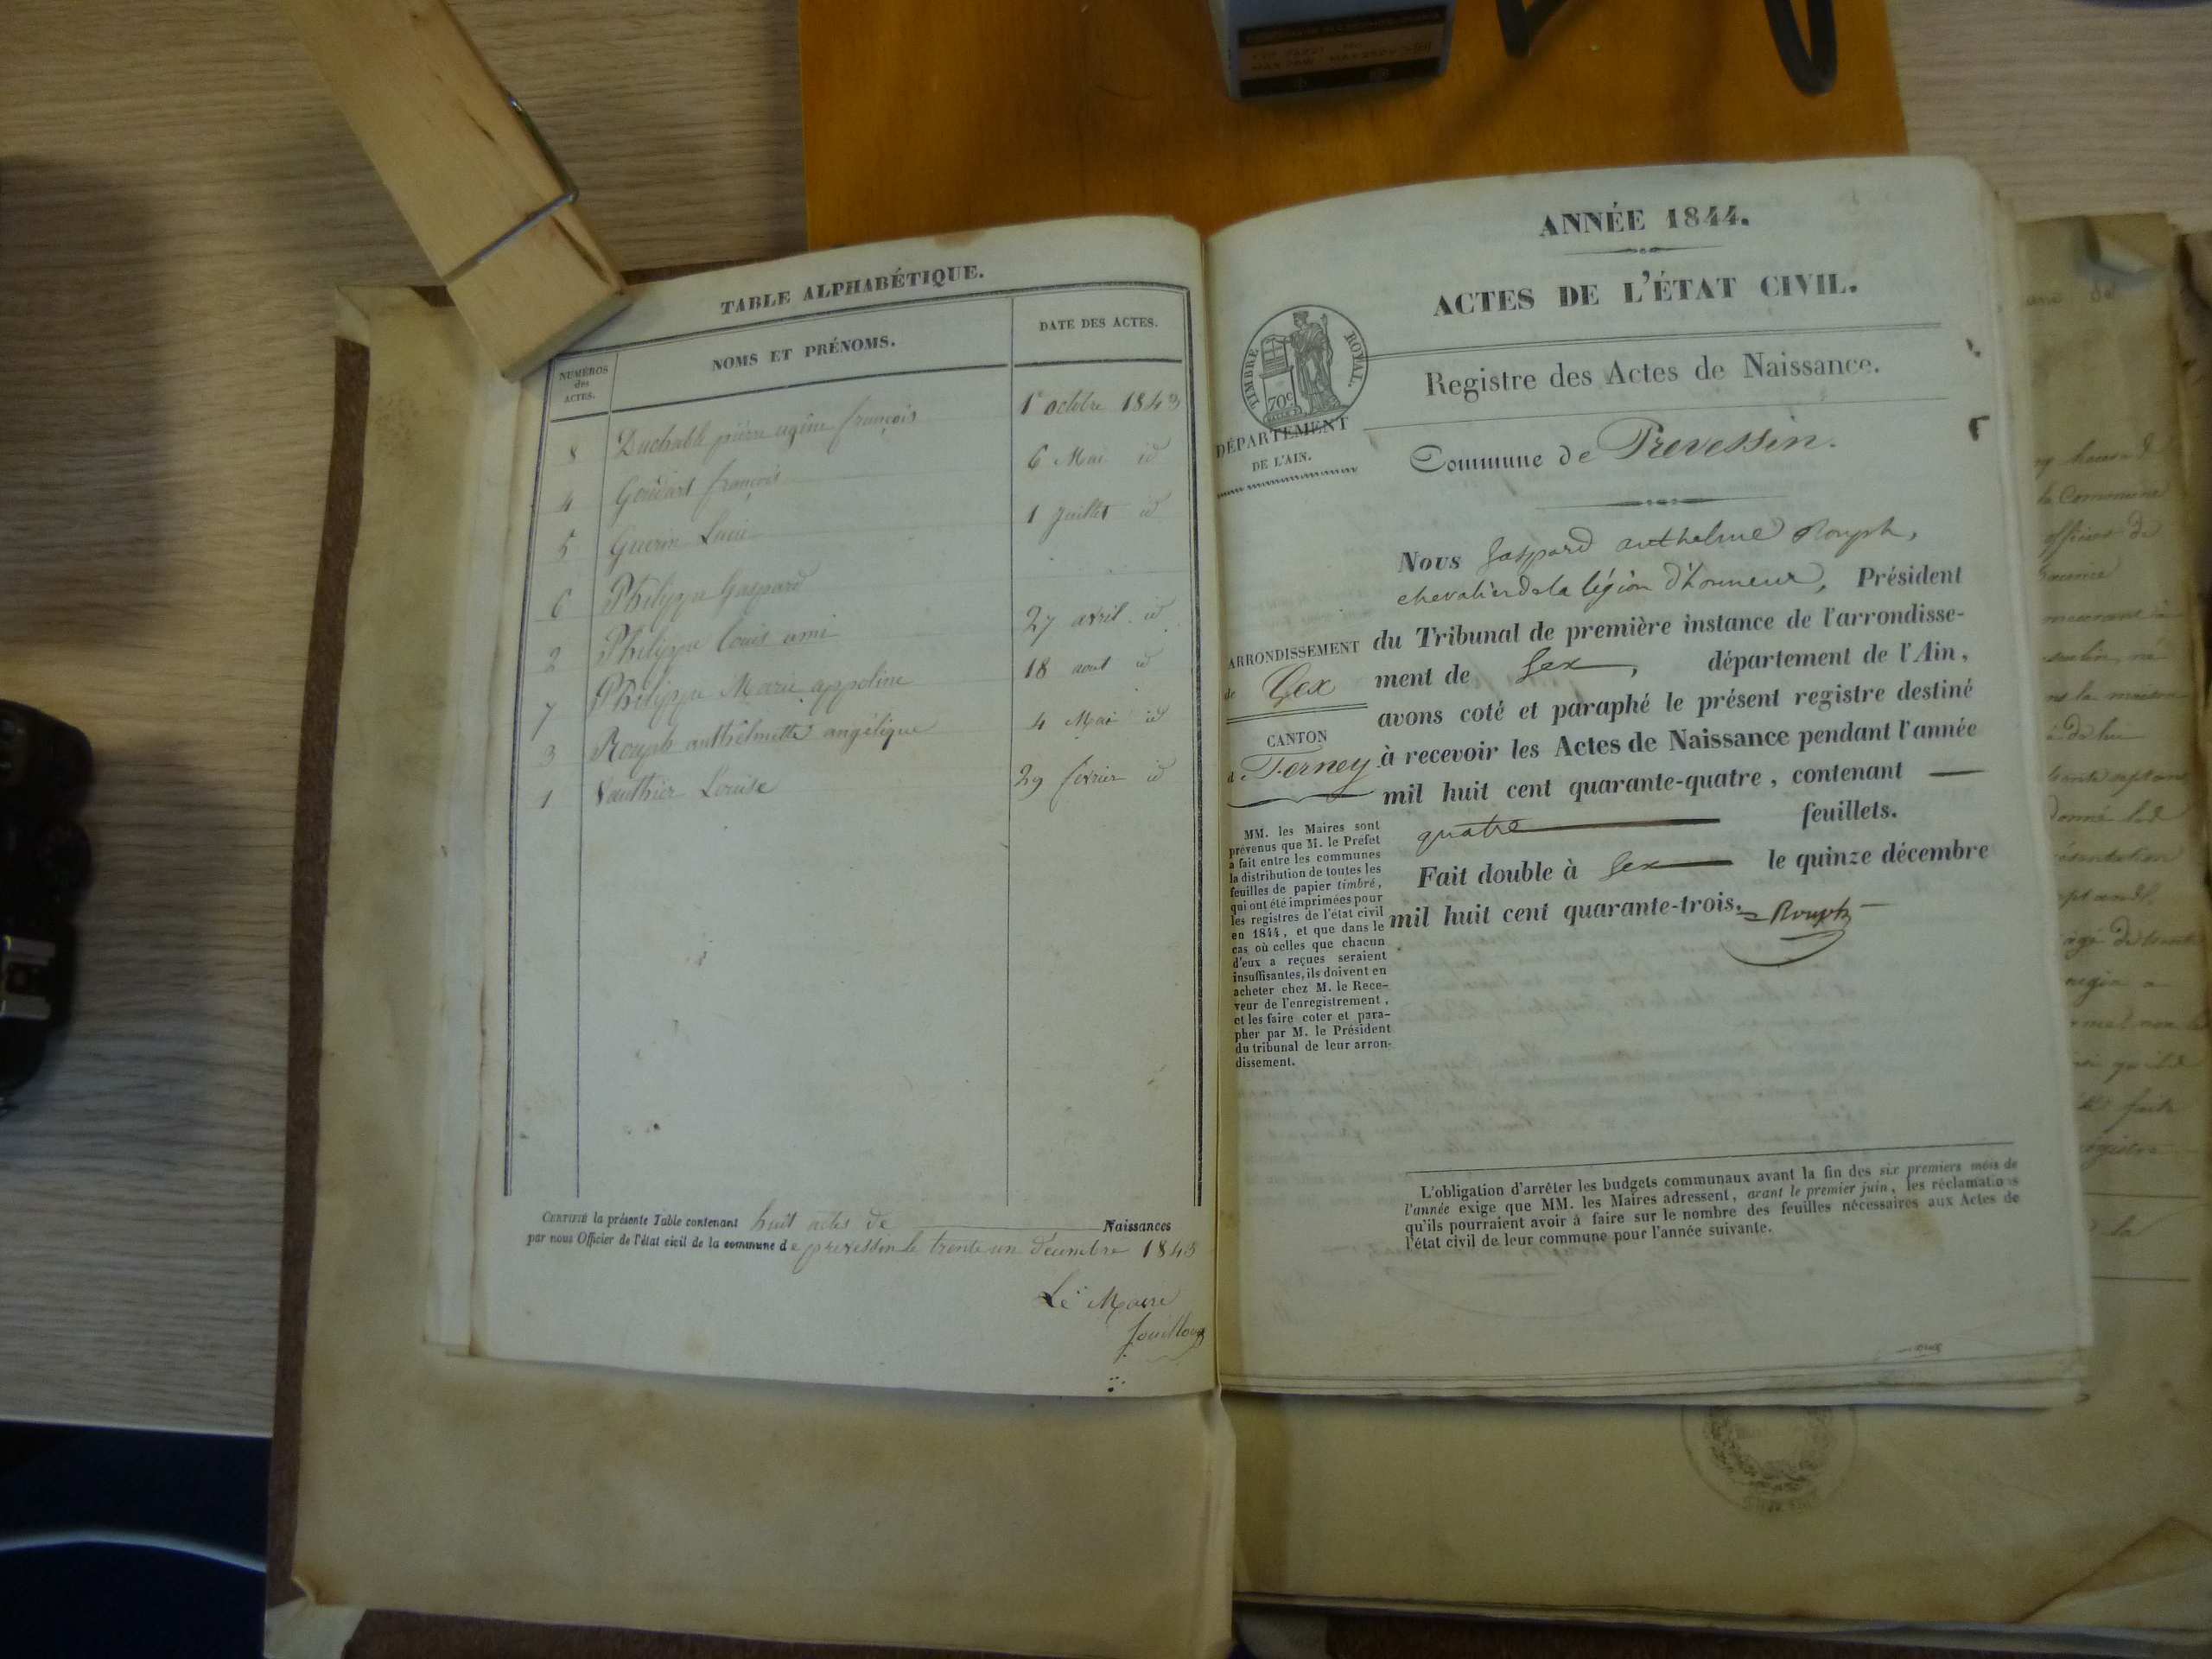 TABLE ALPHABÉTIQUE.
NUMÉROS
des
ACTES.
NOMS ET PRÉNOMS.
DATE DES ACTES.
8 Duchable pierre ugène françois 1er octobre 1843
4 françois 6 Mai id
5 Guerin Lucie 1 Juillet id
6 Philippe Gaspard
2 Philippe Louis ami 27 avril id
7 Philippe Marie appoline 18 aout id
3 Rouph anthelmette angélique 4 Mai id
1 Vauthier Louise 29 février id
CERTIFIÉ la présente Table contenant huit actes de Naissances
par nous Officier de l'état civil de la commune de prevessin le trente un decembre 1843
Le Maire
ANNÉE 1844.
ACTES DE L'ÉTAT CIVIL.
TIMBRE ROYAL.
70c
Registre des Actes de Naissance.
DÉPARTEMENT
DE L'AIN.
Commune de Prevessin.
Nous Gaspard anthelme Rouph,
chevalier de la légion d'honneur, Président
du Tribunal de première instance de l'arrondisse-
ment de Gex, département de l'Ain,
avons coté et paraphé le présent registre destiné
à recevoir les Actes de Naissance pendant l'année
mil huit cent quarante-quatre, contenant
quatre feuillets.
Fait double à Gex le quinze décembre
mil huit cent quarante-trois.
Rouph
ARRONDISSEMENT
de Gex
CANTON
de Ferney
MM. les Maires sont
prévenus que M. le Préfet
a fait entre les communes
la distribution de toutes les
feuilles de papier timbré,
qui ont été imprimées pour
les registres de l'état civil
en 1844, et que dans le
cas où celles que chacun
d'eux a reçues seraient
insuffisantes, ils doivent en
acheter chez M. le Rece-
veur de l'enregistrement,
et les faire coter et para-
pher par M. le Président
du tribunal de leur arron-
dissement.
L'obligation d'arrêter les budgets communaux avant la fin des six premiers mois de
l'année exige que MM. les Maires adressent, avant le premier juin, les réclamations
qu'ils pourraient avoir à faire sur le nombre des feuilles nécessaires aux Actes de
l'état civil de leur commune pour l'année suivante.